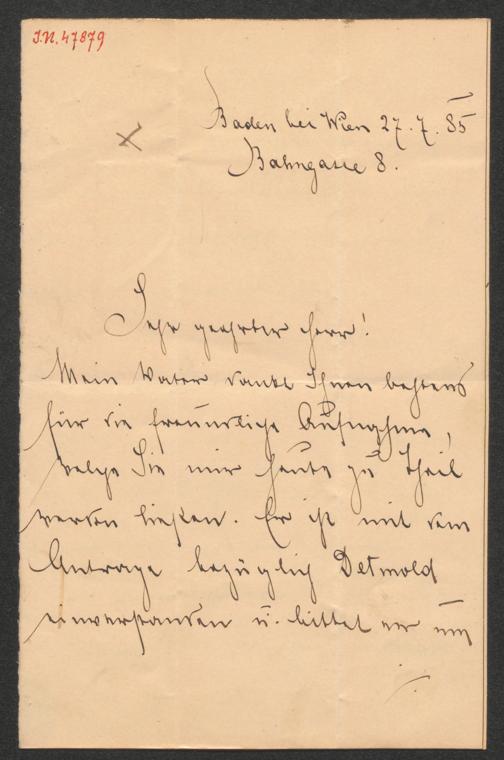 I.N. 47879
Baden bei Wien 27. 7. 85
Bahngasse 8.
Sehr geehrter Herr!
Mein Vater dankt Ihnen bestens
für die freundliche Aufnahme,
welche Sie mir heute zu Theil
werden ließen. Er ist mit dem
Antrage bezüglich Detmold
einverstanden u. bittet nur um